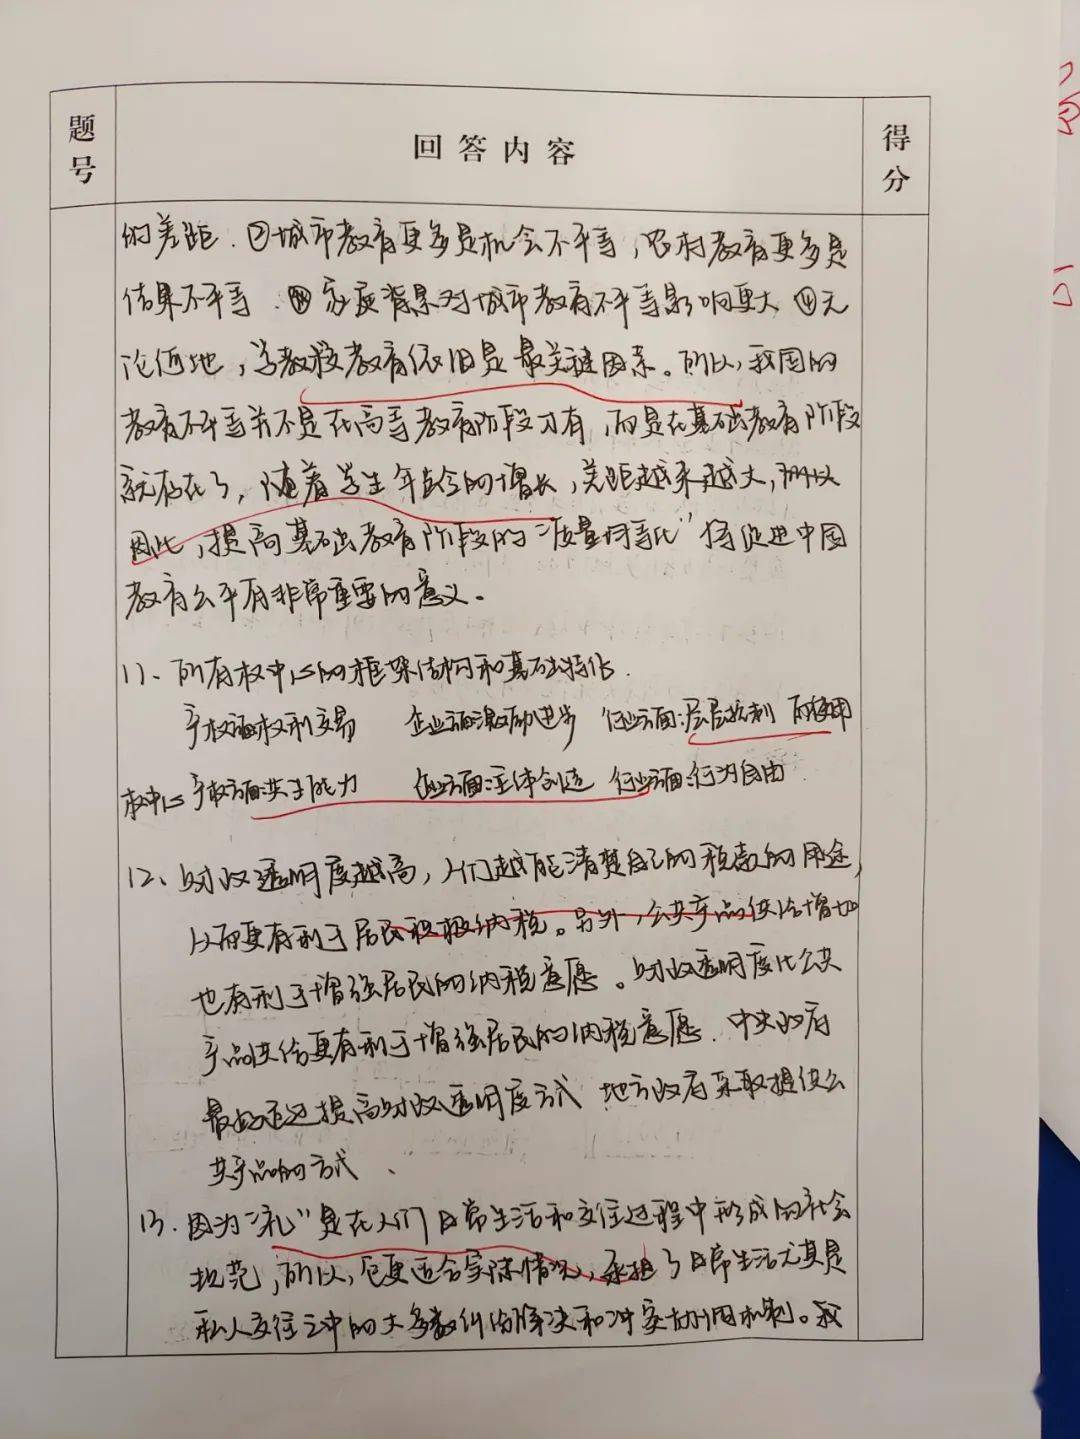 题号 回答内容 得分
的差距．②城市教育更多是机会不平等，农村教育更多是
结果不平等．③家庭背景对城市教育不平等影响更大 ④无
论何地，学教校教育依旧是最关键因素。所以，我国的
教育不平等并不是在高等教育阶段才有，而是在基础教育阶段
就存在了，随着学生年龄的增长，差距越来越大，所以
因此，提高基础教育阶段的“质量均等化”将促进中国
教育公平有非常重要的意义。
11、所有权中心的框架结构和基础特征．
产权方面权利交易 企业方面激励进步 行业方面：层层控制 而使用
权中心 产权方面：共享能力 企业方面：主体创造 行业方面：行为自由
12、财政透明度越高，人们越能清楚自己的税款的用途，
从而更有利于居民积极纳税。另外，公共产品供给增加
也有利于增强居民的纳税意愿。财政透明度比公共
产品供给更有利于增强居民的纳税意愿．中央政府
最好通过提高财政透明度方式 地方政府采取提供公
共产品的方式、
13．因为“礼”是在人们日常生活和交往过程中形成的社会
规范，所以，它更适合实际情况，承担了日常生活尤其是
私人交往之中的大多数纠纷解决和冲突协调机制。我